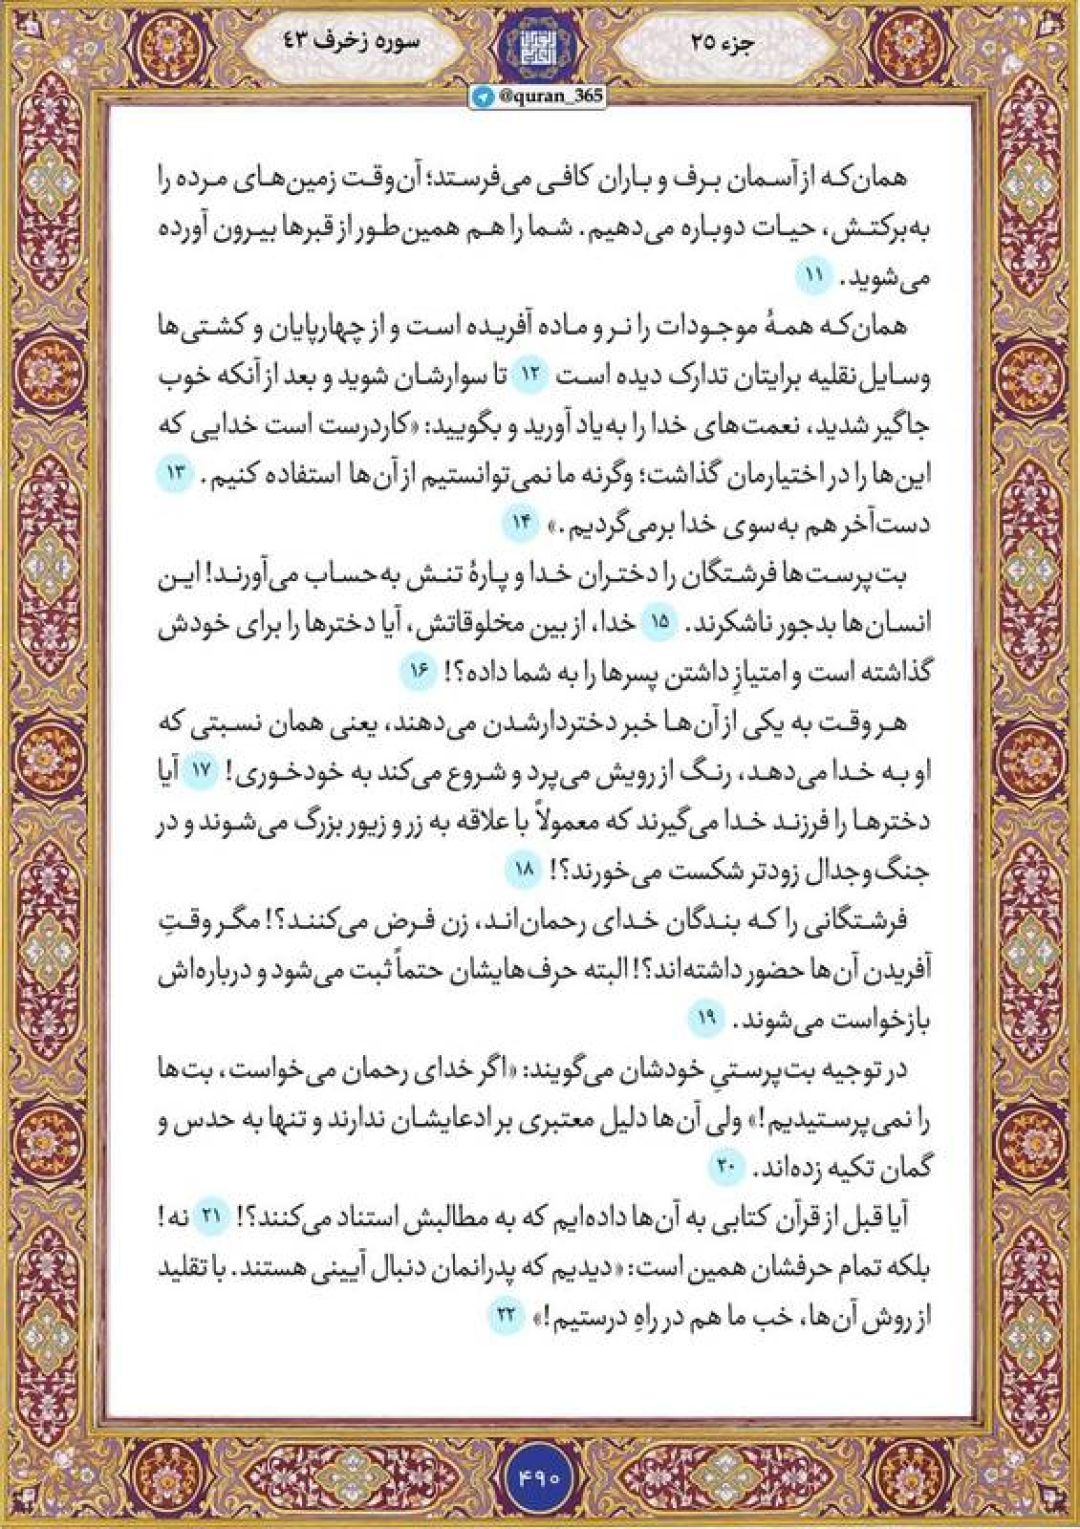 جزء ۲۵
سوره زخرف ۴۳
@quran_365
همان‌که از آسمان برف و باران کافی می‌فرستد؛ آن‌وقت زمین‌های مرده را
به‌برکتش، حیات دوباره می‌دهیم. شما را هم همین‌طور از قبرها بیرون آورده
می‌شوید. ۱۱
همان‌که همهٔ موجودات را نر و ماده آفریده است و از چهارپایان و کشتی‌ها
وسایل‌نقلیه برایتان تدارک دیده است ۱۲ تا سوارشان شوید و بعد از آنکه خوب
جاگیر شدید، نعمت‌های خدا را به‌یاد آورید و بگویید: «کاردرست است خدایی که
این‌ها را در اختیارمان گذاشت؛ وگرنه ما نمی‌توانستیم از آن‌ها استفاده کنیم. ۱۳
دست‌آخر هم به‌سوی خدا برمی‌گردیم.» ۱۴
بت‌پرست‌ها فرشتگان را دختران خدا و پارهٔ تنش به‌حساب می‌آورند! این
انسان‌ها بدجور ناشکرند. ۱۵ خدا، از بین مخلوقاتش، آیا دخترها را برای خودش
گذاشته است و امتیازِ داشتن پسرها را به شما داده؟! ۱۶
هر وقت به یکی از آن‌ها خبر دختردارشدن می‌دهند، یعنی همان نسبتی که
او به خدا می‌دهد، رنگ از رویش می‌پرد و شروع می‌کند به خودخوری! ۱۷ آیا
دخترها را فرزند خدا می‌گیرند که معمولاً با علاقه به زر و زیور بزرگ می‌شوند و در
جنگ‌وجدال زودتر شکست می‌خورند؟! ۱۸
فرشتگانی را که بندگان خدای رحمان‌اند، زن فرض می‌کنند؟! مگر وقتِ
آفریدن آن‌ها حضور داشته‌اند؟! البته حرف‌هایشان حتماً ثبت می‌شود و درباره‌اش
بازخواست می‌شوند. ۱۹
در توجیه بت‌پرستیِ خودشان می‌گویند: «اگر خدای رحمان می‌خواست، بت‌ها
را نمی‌پرستیدیم!» ولی آن‌ها دلیل معتبری بر ادعایشان ندارند و تنها به حدس و
گمان تکیه زده‌اند. ۲۰
آیا قبل از قرآن کتابی به آن‌ها داده‌ایم که به مطالبش استناد می‌کنند؟! ۲۱ نه!
بلکه تمام حرفشان همین است: «دیدیم که پدرانمان دنبال آیینی هستند. با تقلید
از روش آن‌ها، خب ما هم در راهِ درستیم!» ۲۲
۴۹۰